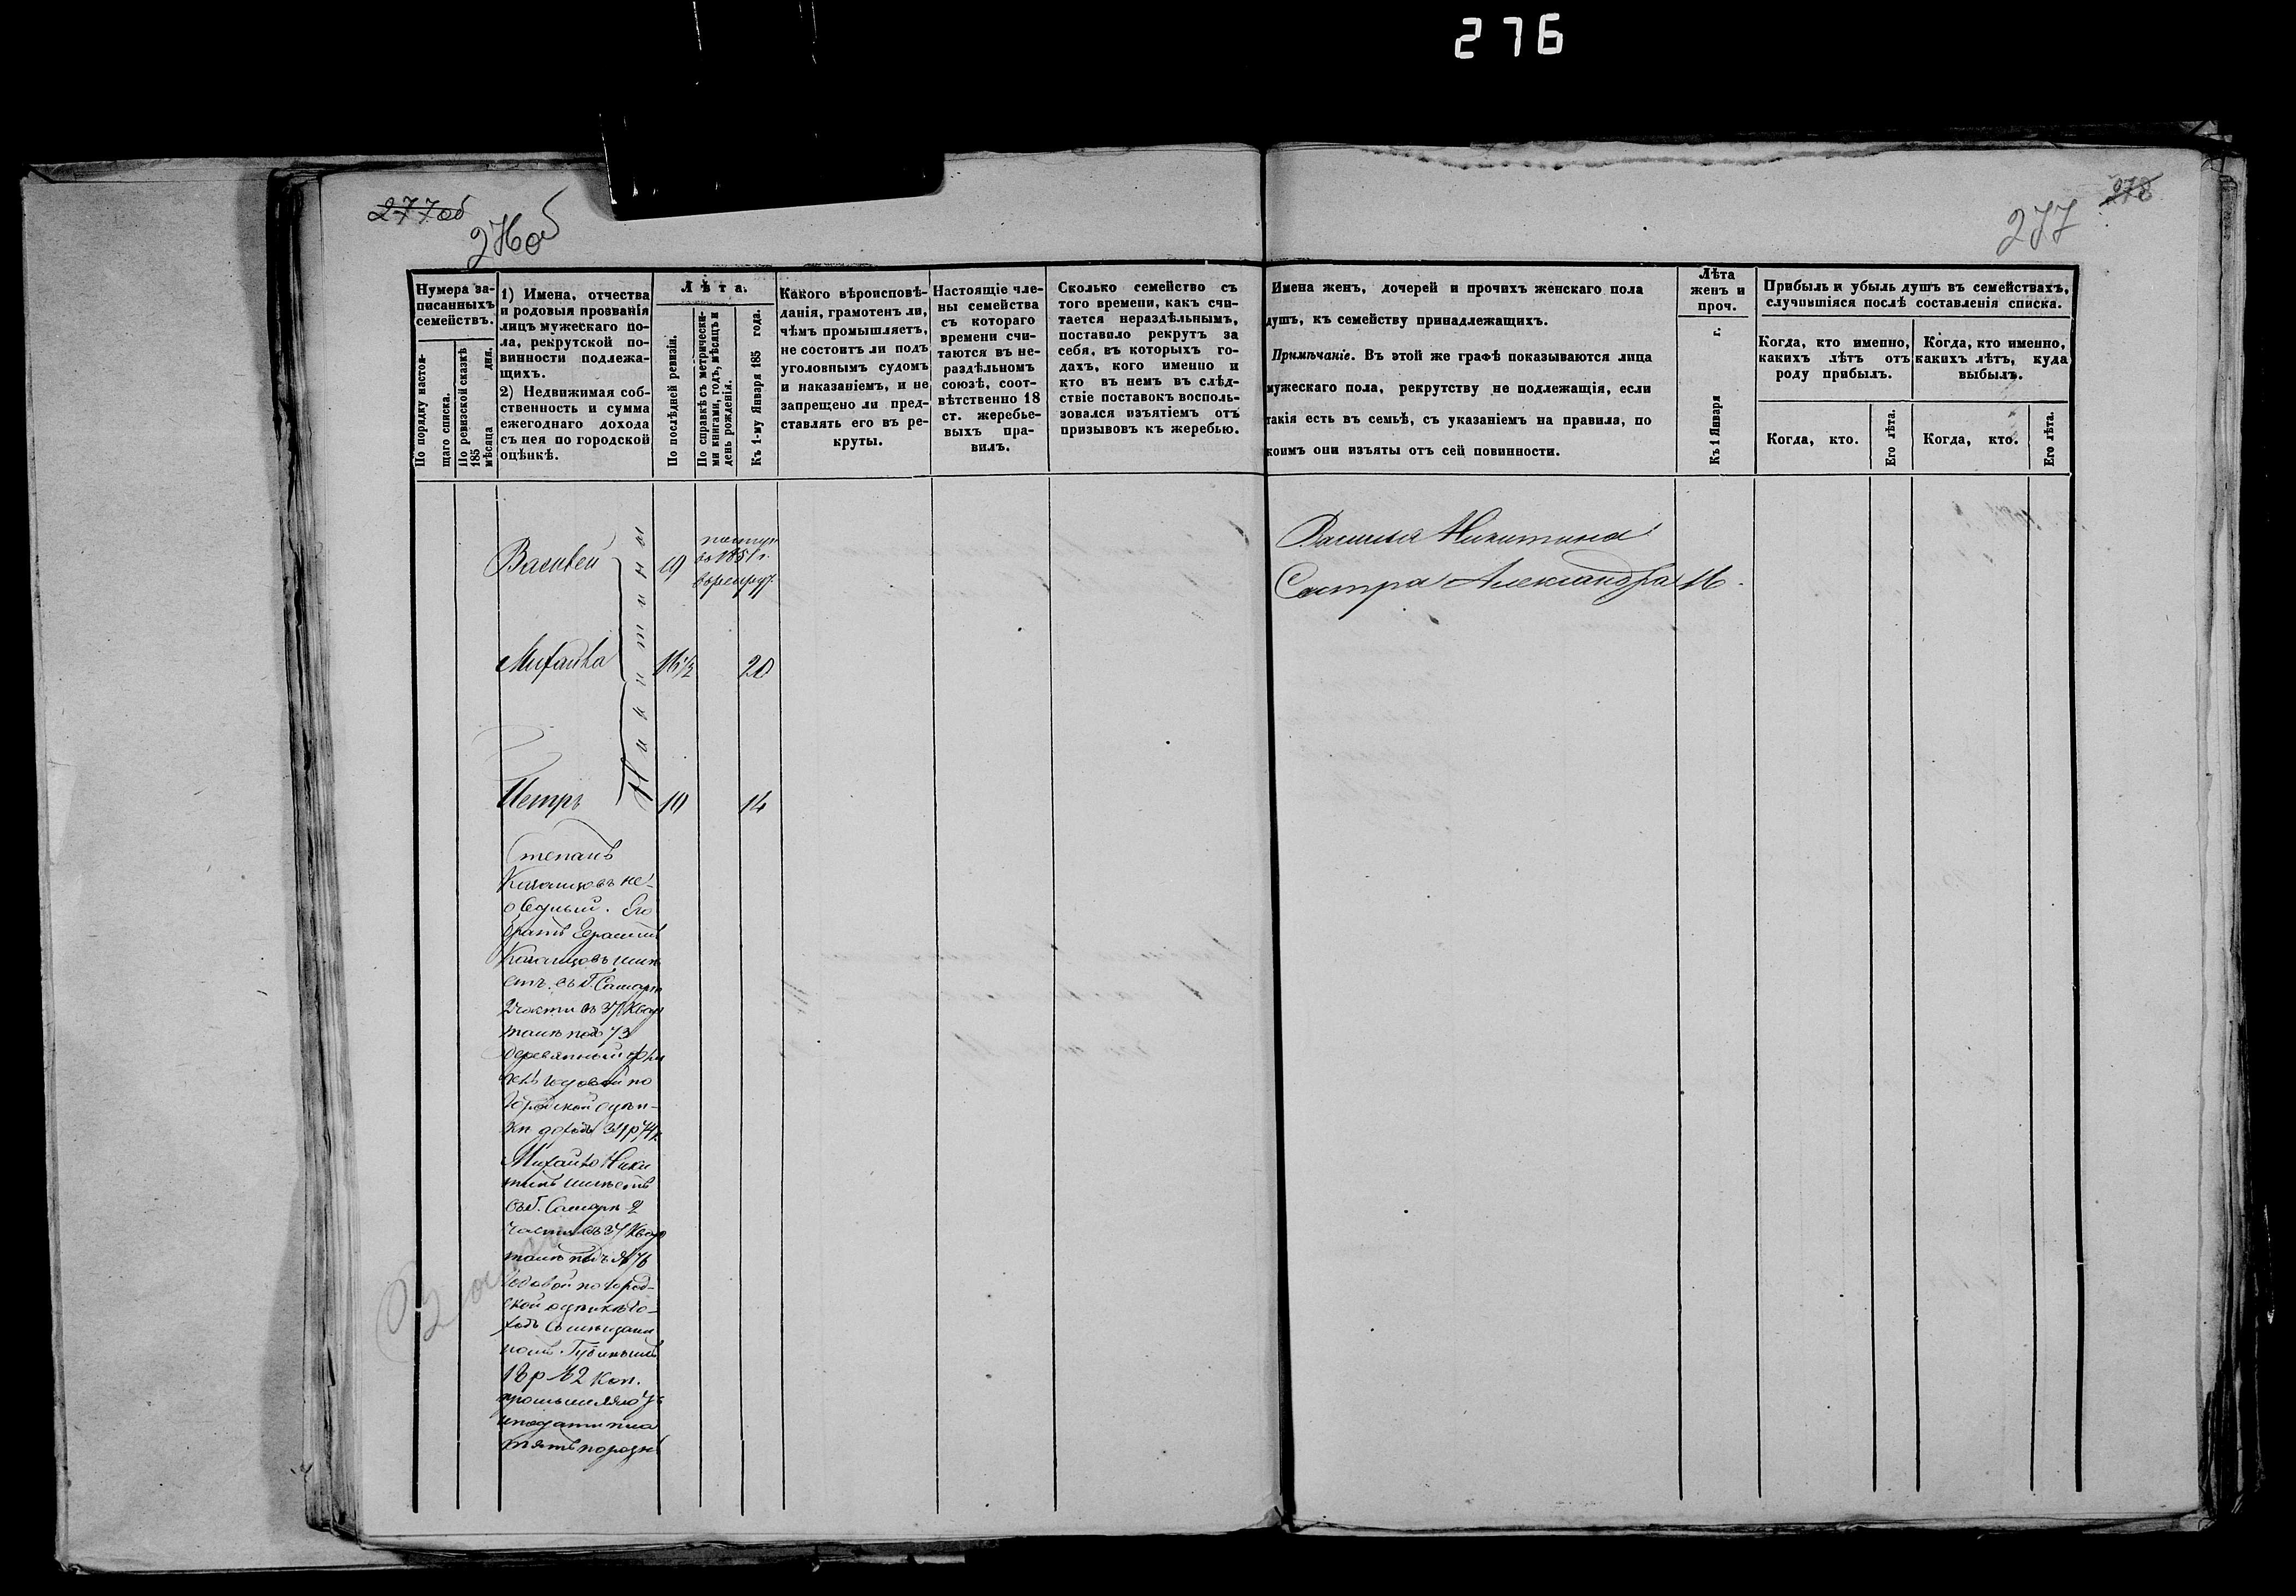 276
277об
276об
277
278
Нумера за-
писанныхъ
семействъ.
По порядку настоя-
щаго списка.
По ревизской сказкѣ
185 дня.
мѣсяца
1) Имена, отчества
и родовыя прозванія
лицъ мужескаго по-
ла, рекрутской по-
винности подлежа-
щихъ.
2) Недвижимая соб-
ственность и сумма
ежегоднаго дохода
съ нея по городской
оцѣнкѣ.
Лѣта.
По послѣдней ревизіи.
По справкѣ съ метрически-
ми книгами, годъ, мѣсяцъ и
день рожденія.
Къ 1-му Января 185 года.
Какого вѣроисповѣ-
данія, грамотенъ ли,
чѣмъ промышляетъ,
не состоитъ ли подъ
уголовнымъ судомъ
и наказаніемъ, и не
запрещено ли пред-
ставлять его въ ре-
круты.
Настоящіе чле-
ны семейства
съ котораго
времени счи-
таются въ не-
раздѣльномъ
союзѣ, соот-
вѣтственно 18
ст. жеребье-
выхъ пра-
вилъ.
Сколько семейство съ
того времени, какъ счи-
тается нераздѣльнымъ,
поставило рекрутъ за
себя, въ которыхъ го-
дахъ, кого именно и
кто въ немъ въ слѣд-
ствіе поставокъ восполь-
зовался изъятіемъ отъ
призывовъ къ жеребью.
Имена женъ, дочерей и прочихъ женскаго пола
душъ, къ семейству принадлежащихъ.
Примѣчаніе. Въ этой же графѣ показываются лица
мужескаго пола, рекрутству не подлежащія, если
такія есть въ семьѣ, съ указаніемъ на правила, по
коимъ они изъяты отъ сей повинности.
Лѣта
женъ и
проч.
Къ 1 Января г.
Прибыль и убыль душъ въ семействахъ,
случившіяся послѣ составленія списка.
Когда, кто именно,
какихъ лѣтъ отъ
роду прибылъ.
Когда, кто именно,
какихъ лѣтъ, куда
выбылъ.
Когда, кто.
Его лѣта.
Когда, кто.
Его лѣта.
Василей 19 поступ
въ 1851 г.
въ рекрут.
Михайла 16½ 20
Петръ 10 14
Никитины
Степанъ
не-
бѣдный. Его
братъ Герасимъ
имѣ
етъ въ г. Самарѣ
2 части въ 37 квар
талѣ под 73
деревянный фли
гель годовой по
городской оцѣн-
ки доходъ
Михайло Ники
тинъ имѣетъ
въ г. Самарѣ 2
части въ 37 квар
талѣ подъ № 76
годовой по город-
ской оцѣнкѣ до-
ходъ съ мѣщани
номъ Губинымъ
18 р 12 коп.
промышляютъ
и подати пла
тятъ порознь
Василья Никитина
Сестра Александра 16